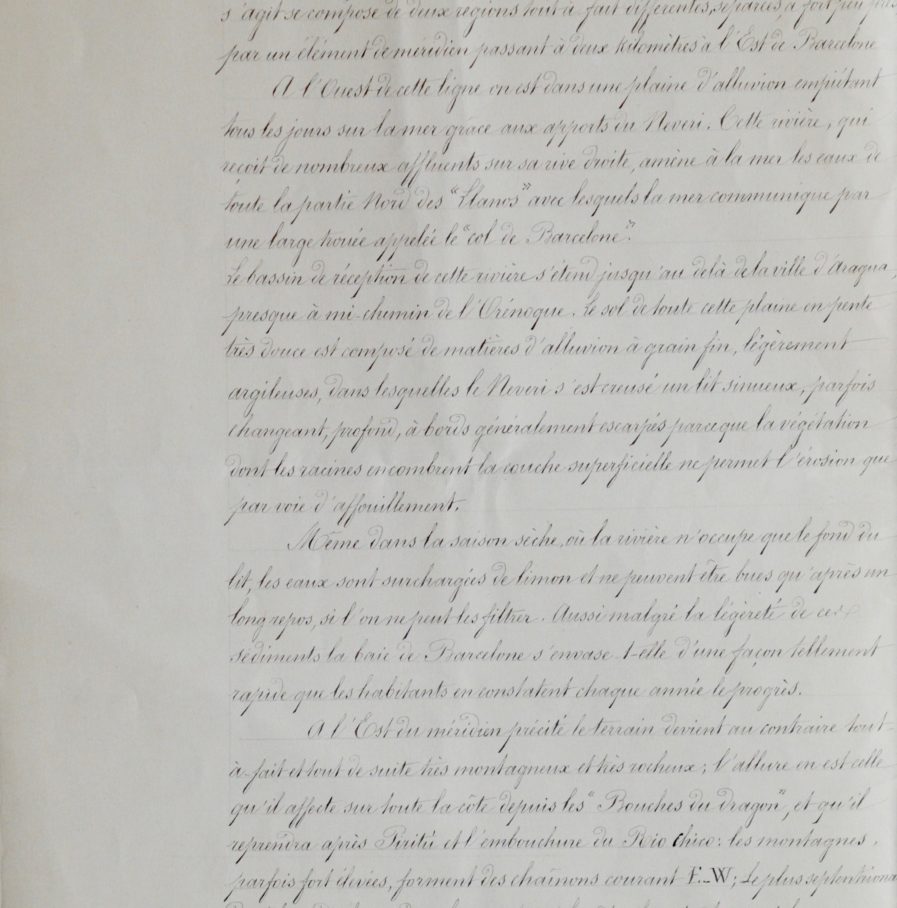 s'agit se compose de deux régions tout à fait différentes, séparées, à fort peu près
par un élément de méridien passant à deux kilomètres à l'Est de Barcelone
A l'Ouest de cette ligne on est dans une plaine d'alluvion empiétant
tous les jours sur la mer grâce aux apports du Neveri. Cette rivière, qui
reçoit de nombreux affluents sur sa rive droite, amène à la mer les eaux de
toute la partie Nord des "Llanos" avec lesquels la mer communique par
une large trouée appelée le "col de Barcelone".
Le bassin de réception de cette rivière s'étend jusqu'au delà de la ville d'Aragua,
presque à mi-chemin de l'Orénoque. Le sol de toute cette plaine en pente
très douce est composé de matières d'alluvion à grain fin, légèrement
argileuses, dans lesquelles le Neveri s'est creusé un lit sinueux, parfois
changeant, profond, à bords généralement escarpés parce que la végétation
dont les racines encombrent la couche superficielle ne permet l'érosion que
par voie d'affouillement.
Même dans la saison sèche, où la rivière n'occupe que le fond du
lit, les eaux sont surchargées de limon et ne peuvent être bues qu'après un
long repos, si l'on ne peut les filtrer. Aussi malgré la légèreté de ces
sédiments la baie de Barcelone s'envase-t-elle d'une façon tellement
rapide que les habitants en constatent chaque année le progrès.
A l'Est du méridien précité le terrain devient au contraire tout-
à-fait et tout de suite très montagneux et très rocheux; l'allure en est celle
qu'il affecte sur toute la côte depuis les "Bouches du dragon", et qu'il
reprendra après Piritú et l'embouchure du Rio chico: les montagnes,
parfois fort élevées, forment des chaînons courant E_W; Le plus septentrional